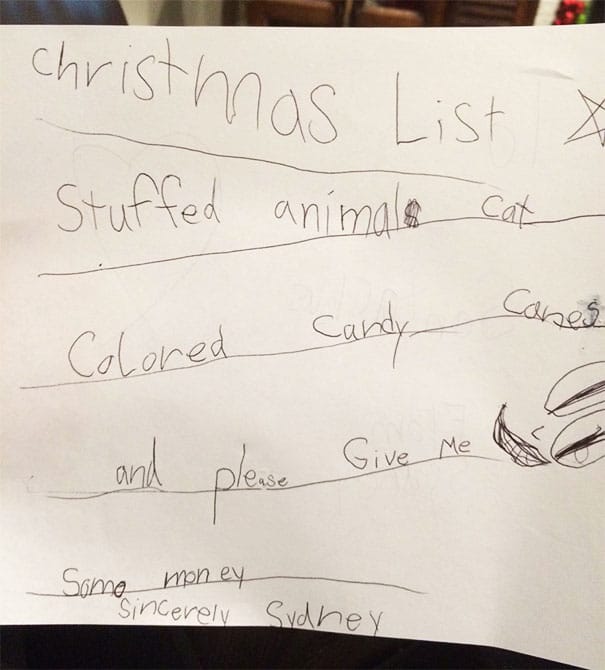 christmas List
Stuffed animals Cat
Colored Candy Canes
and please Give Me
Some money
Sincerely Sydney